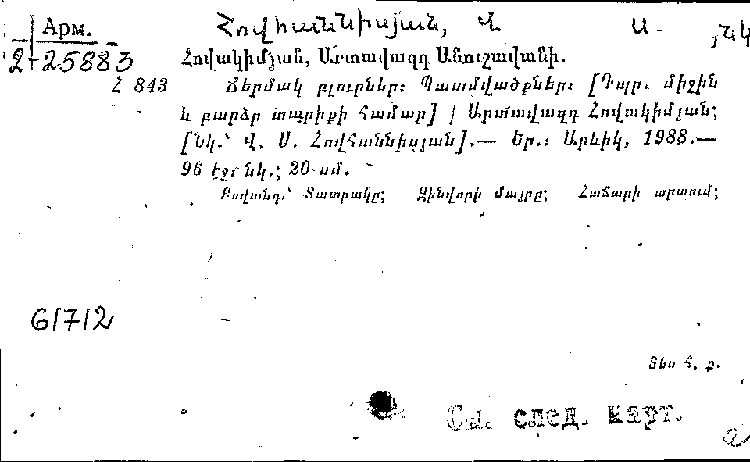 Арм. Հովհաննիսյան, Վ. Ս. նկ
2-25883 Հովակիմյան, Արտավազդ Անուշավանի.
Հ 843 Ճերմակ բլուրներ: Պատմվածքներ: [Դպր. միջին
և բարձր տարիքի համար] / Արտավազդ Հովակիմյան;
[նկ.՝ Վ. Ս. Հովհաննիսյան].— Եր.: Արևիկ, 1988.—
96 էջ: նկ.; 20 սմ.
Բովանդ.՝ Տատրակը; Զինվորի մայրը; Հաճարի արտում;
61712
Տես հ. ք.
См. след. карт.